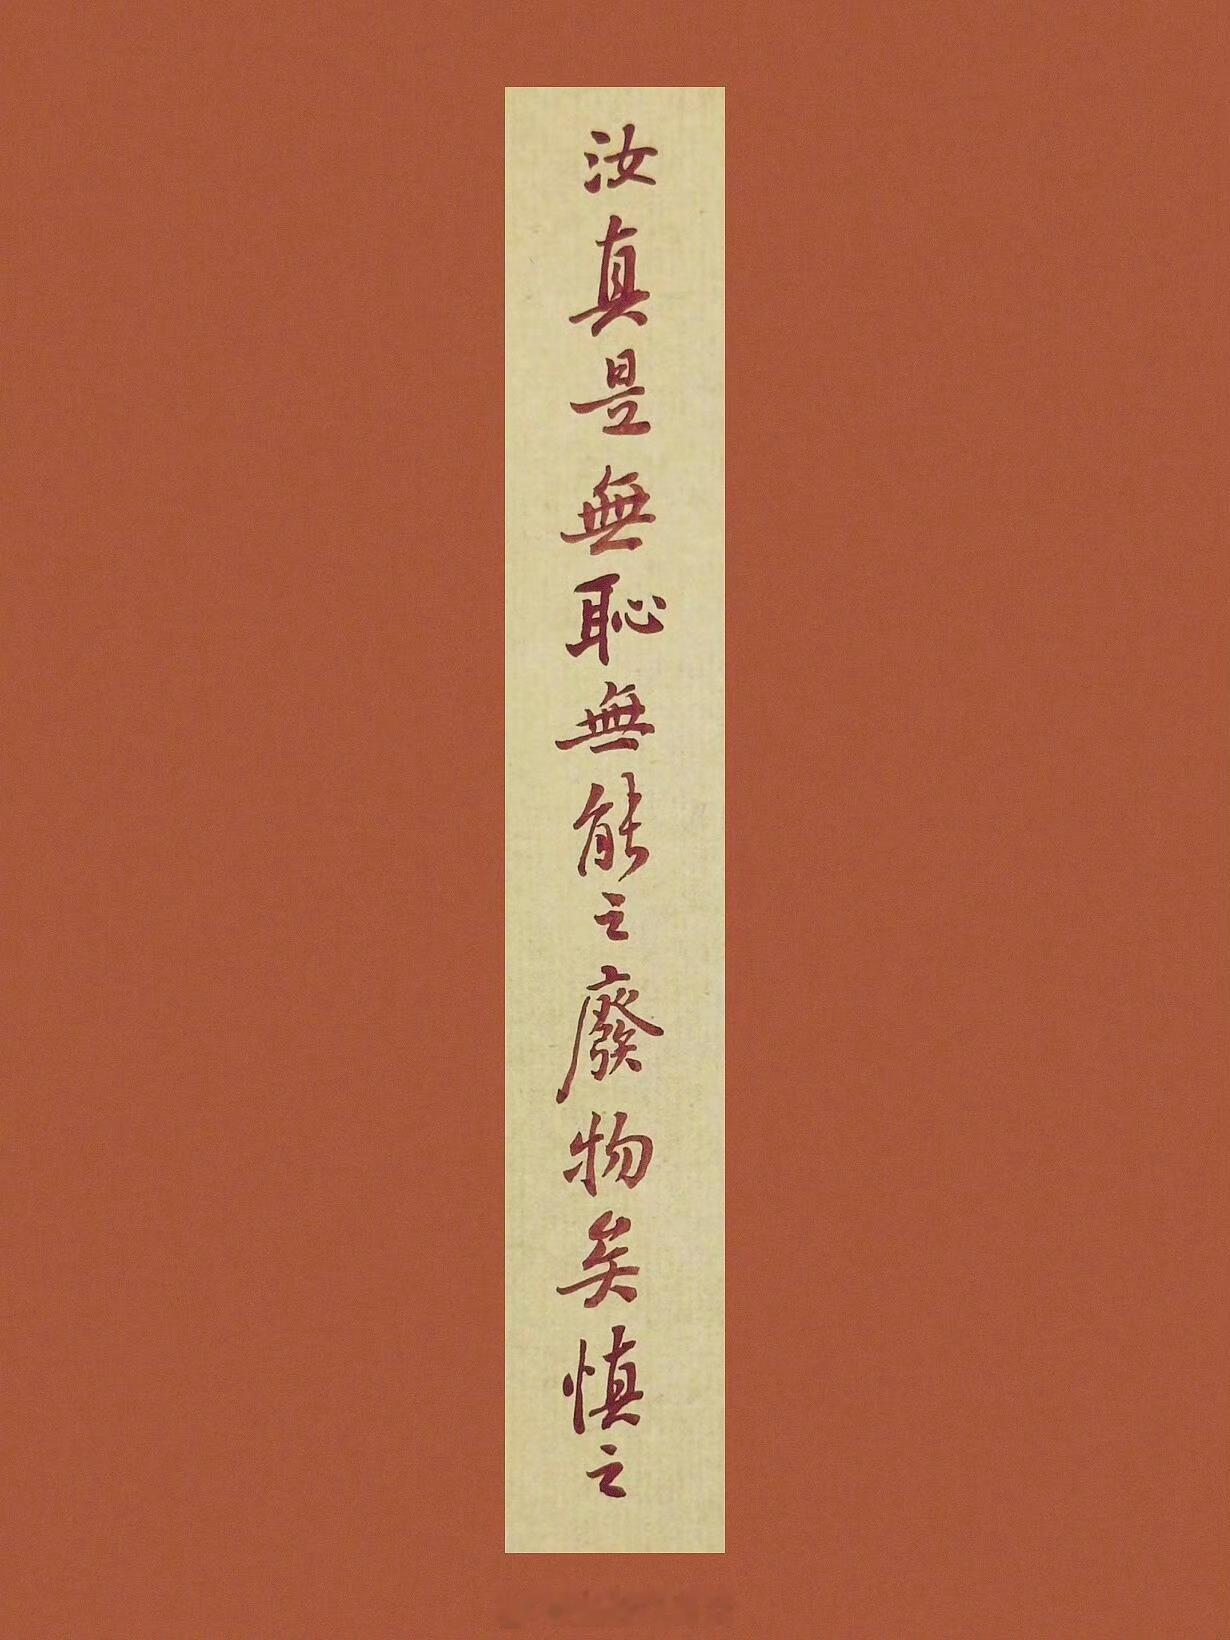 汝真是無恥無能之廢物矣慎之